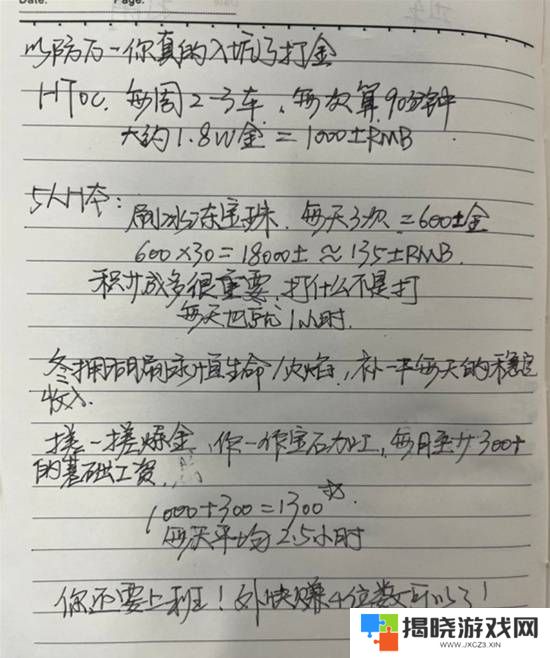 Date:
Page:
以防万一你真的入坑了打金
HTOC. 每周2-3车, 每次算90分钟
大约1.8W金 = 1000±RMB
5人H本:
刷冰冻宝珠. 每天3次 = 600±金
600×30=18000± ≈ 135±RMB.
积少成多很重要, 打什么不是打
每天也就1小时.
冬拥湖刷永恒生命/火焰, 补一下每天的稳定
收入.
搓一搓炼金, 做一做宝石加工, 每月至少300+
的基础工资.
1000+300=1300
每天平均2.5小时
你还要上班! 外快赚4位数可以了!
揭晓游戏网
WWW.JXCZ3.XIN